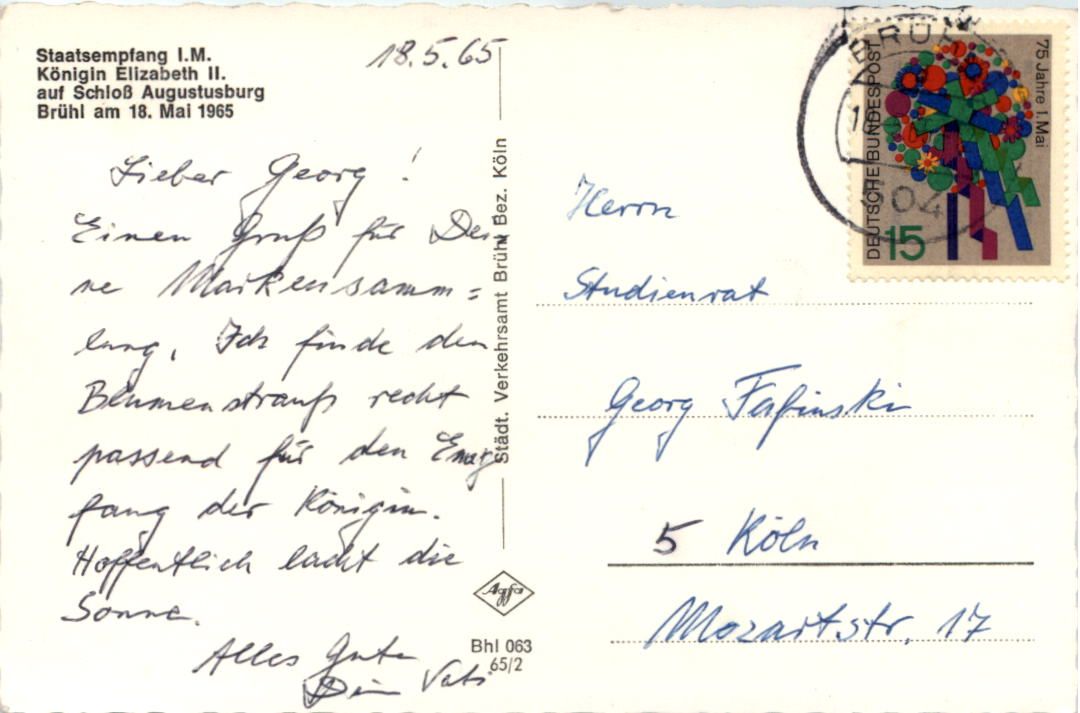 Staatsempfang I.M.
Königin Elizabeth II.
auf Schloß Augustusburg
Brühl am 18. Mai 1965
18.5.65
Lieber Georg!
Einen Gruß für Dei
ne Markensamm=
lung. Ich finde den
Blumenstrauß recht
passend für den Emp
fang der Königin.
Hoffentlich lacht die
Sonne.
Alles Gute
Dein Vati
Städt. Verkehrsamt Brühl Bez. Köln
Agfa
Bhl 063
65/2
BRÜHL
504
DEUTSCHE BUNDESPOST
75 Jahre 1. Mai
15
Herrn
Studienrat
Georg
5 Köln
Mozartstr. 17